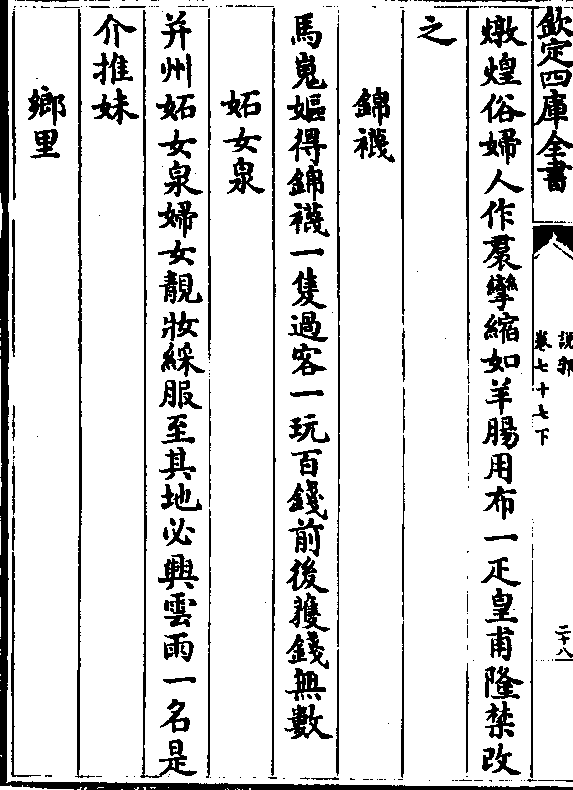 欽定四庫全書
說郛
卷七十七下
二十八
燉煌俗婦人作裠攣縮如羊腸用布一疋皇甫隆禁改
之
錦襪
馬嵬嫗得錦襪一隻過客一玩百錢前後獲錢無數
妬女泉
并州妬女泉婦女靚妝綵服至其地必興雲雨一名是
介推妹
鄉里